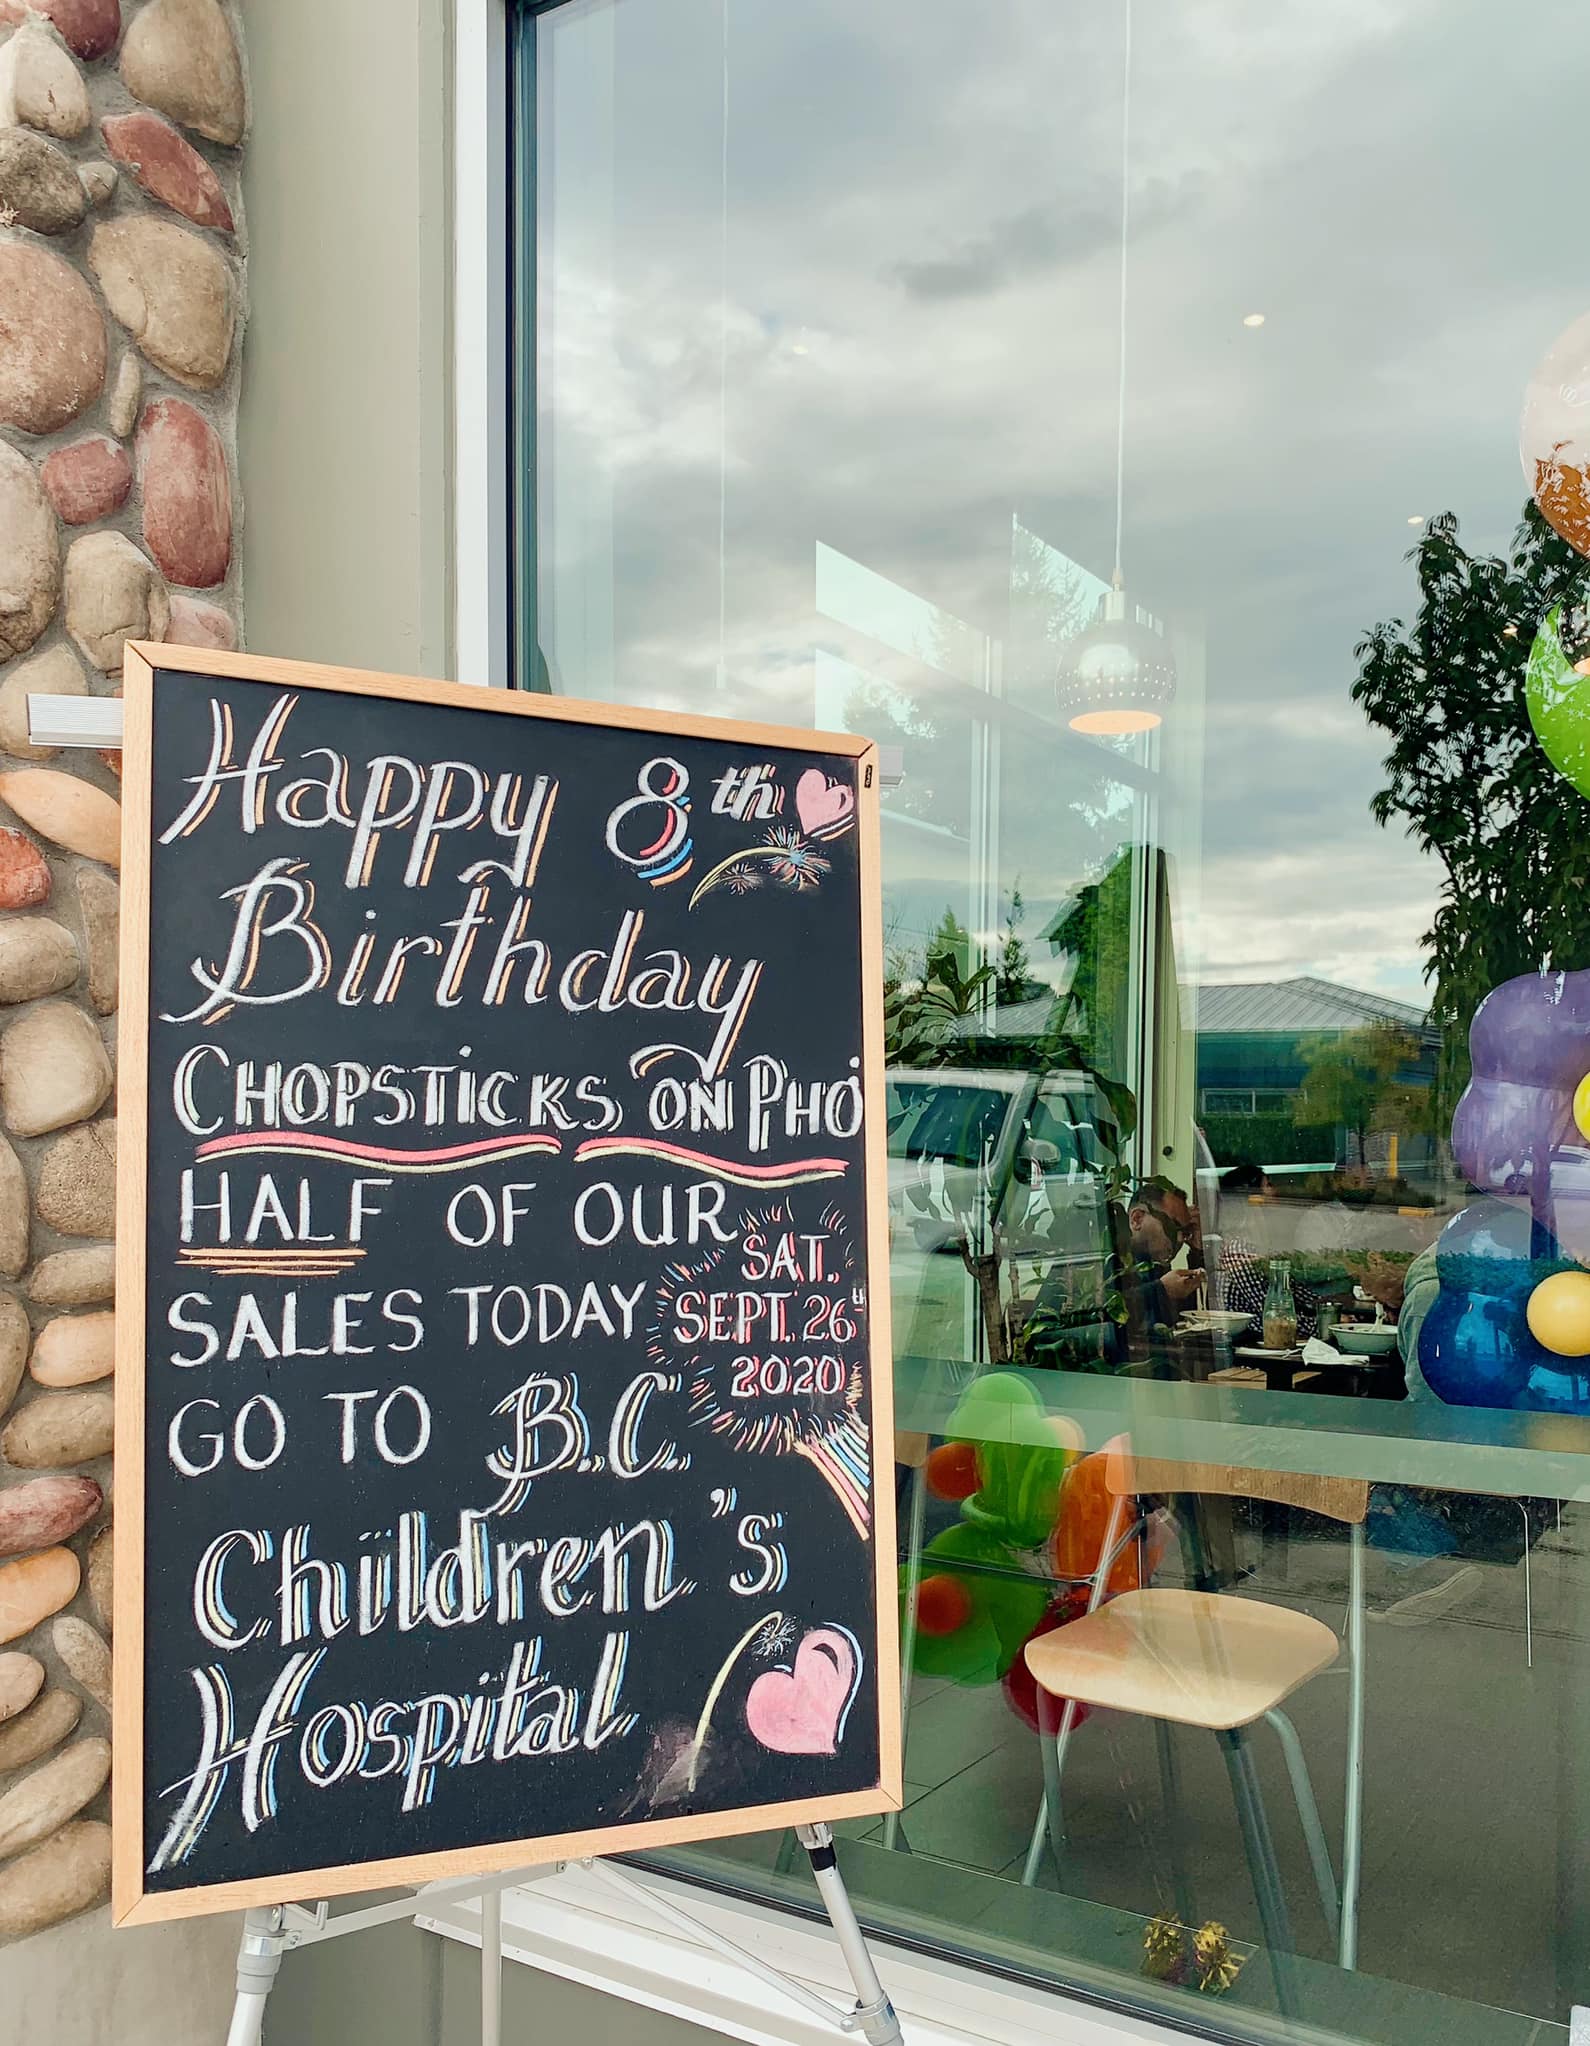 Happy 8th
Birthday
CHOPSTICKS ON PHỞ
HALF OF OUR
SALES TODAY
SAT.
SEPT. 26th
2020
GO TO B.C.
Children's
Hospital